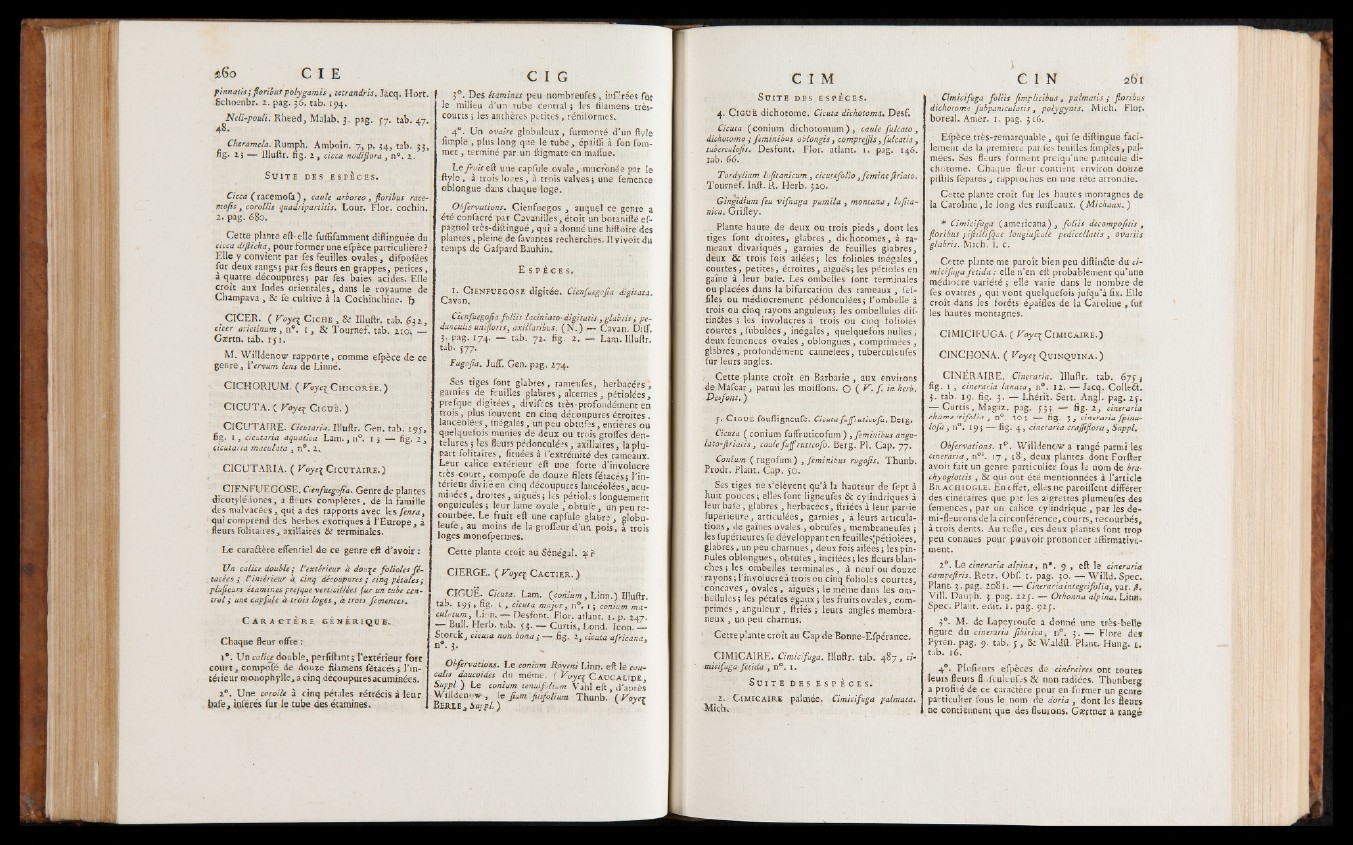 260 C I E
pinnatis; floribus polygamis, tetrandris. Jacq. Hort.
Schoenbr. 2. pag. 36. tab. 194.
Neli-pouli. Rheed, Malab. 3. pag. 57. tab. 47.
48.
Cheramela. Rumph. Amboin. 7, p. 34, tab. 33,
fig. 23 — Illustr. fig. 2, cicca nodiflora, n°. 2.
SUITE DES ESPÈCES.
Cicca (racemosa), caule arboreo, floribus race-
mosis, corollis quadripartitis. Lour. Flor. cochin.
2. pag. 680.
Cette plante est-elle suffisamment distinguée du
cicca disticha, pour former une espèce particulière?
Elle y convient par ses feuilles ovales, disposées
sur deux rangs; par ses fleurs en grappes, petites,
à quatre découpures; par ses baies acides. Elle
croît aux Indes orientales, dans le royaume de
Champava, & se cultive à la Cochinchine. ♄
CICER. (Voyez CICHE, & Illustr. tab. 632,
cicer arietinum, n°. 1, & Tournef. tab. 210, —
Gærtn. tab. 151.
M. Willdenow rapporte, comme espèce de ce
genre, l'ervum lens de Linné.
CICHORIUM. (Voyez CHICORÉE.)
CICUTA. (Voyez CIGUË.)
CICUTAIRE. Cicutaria. Illustr. Gen. tab. 195,
fig. 1, cicutaria aquatica Lam., n°. 13 — fig. 2,
cicutaria maculata, n°. 2.
CICUTARIA. (Voyez CICUTAIRE.)
CIENFUEGOSE. Cienfuegosia. Genre de plantes
dicotylédones, à fleurs complètes, de la famille
des malvacées, qui a des rapports avec les senra,
qui comprend des herbes exotiques à l'Europe, à
fleurs solitaires, axillaires & terminales.
Le caractère essentiel de ce genre est d'avoir:
Un calice double; l'extérieur à douze folioles sé-
tacées; l'intérieur à cinq découpures; cinq pétales;
plusieurs étamines presque verticillées sur un tube cen-
tral; une capsule à trois loges, à trois semences.
CARACTÈRE GÉNÉRIQUE.
Chaque fleur offre:
1°. Un calice double, persistant; l'extérieur fort
court, composé de douze filamens sétacés; l'in-
térieur monophylle, à cinq découpures acuminées.
2°. Une corolle à cinq pétales rétrécis à leur
base, insérés sur le tube des étamines.
C I G
3°. Des étamines peu nombreuses, insérées sur
le milieu d'un tube central; les filamens très-
courts; les anthères petites, réniformes.
4°. Un ovaire globuleux, surmonté d'un style
simple, plus long que le tube, épaissi à son som-
met, terminé par un stigmate en massue.
Le fruit est une capsule ovale, mucronée par le
style, à trois loges, à trois valves; une semence
oblongue dans chaque loge.
Observations. Cienfuegos, auquel ce genre a
été consacré par Cavanilles, étoit un botaniste es-
pagnol très-distingué, qui a donné une histoire des
plantes, pleine de savantes recherches. Il vivoit du
temps de Gaspard Bauhin.
ESPÈCES.
1. CIENFUEGOSE digitée. Cienfuegosia digitata.
Cavan.
Cienfuegosia foliis laciniato-digitatis, glabris; pe-
dunculis unifloris, axillaribus. (N.) — Cavan. Diss.
3. pag. 174. — tab. 72. fig. 2. — Lam. Illustr.
tab. 577.
Fugosia. Juss. Gen. pag. 274.
Ses tiges sont glabres, rameuses, herbacées,
garnies de feuilles glabres, alternes, pétiolées,
presque digitées, divisées très-profondément en
trois, plus souvent en cinq découpures étroites,
lancéolées, inégales, un peu obtuses, entières ou
quelquefois munies de deux ou trois grosses den-
telures; les fleurs pédonculées, axillaires, la plu-
part solitaires, situées à l'extrémité des rameaux.
Leur calice extérieur est une forte d'involucre
très-court, composé de douze filets sétacés; l'in-
térieur divisé en cinq découpures lancéolées, acu-
minées, droites, aiguës; les pétioles longuement
onguiculés; leur lame ovale, obtuse, un peu re-
courbée. Le fruit est une capsule glabre, globu-
leuse, au moins de la grosseur d'un pois, à trois
loges monospermes.
Cette plante croît au Sénégal. ♃?
CIERGE. (Voyez CACTIER.)
CIGUË. Cicuta. Lam. (conium, Linn.) Illustr.
tab. 195, fig. 1, cicuta major, n°. 1; conium ma-
culatum, Linn. — Desfont. Flor. atlant. 1. p. 247.
— Bull. Herb. tab. 53. — Curtis, Lond. Icon. —
Storck, cicuta non bona; — fig. 2, cicuta africana,
n°. 3.
Observations. Le conium Royeni Linn. est le cau-
calis daucoides du même. (Voyez CAUCALIDE,
Suppl.) Le conium tenuifolium Vahl est, d'après
Willdenow, le sium filifolium Thunb. (Voyez
BERLE, Suppl.)
C I M
SUITE DES ESPÈCES.
4. CIGUË dichotome. Cicuta dichotoma. Desf.
Cicuta (conium dichotomum), caule sulcato,
dichotomo; seminibus oblongis, compressis, sulcatis,
tuberculosis. Desfont. Flor. atlant. 1. pag. 246.
tab. 66.
Tordylium lusitanicum, cicutæfolio, semine striato.
Tournef. Inst. R. Herb. 320.
Gingidium seu visnaga pumila, montana, lusita-
nica. Grisley.
Plante haute de deux ou trois pieds, dont les
tiges sont droites, glabres, dichotomes, à ra-
meaux divariqués, garnies de feuilles glabres,
deux & trois fois ailées; les folioles inégales,
courtes, petites, étroites, aiguës; les pétioles en
gaîne à leur base. Les ombelles sont terminales
ou placées dans la bifurcation des rameaux, ses-
siles ou médiocrement pédonculées; l'ombelle à
trois ou cinq rayons anguleux; les ombellules dis-
tinctes; les involucres à trois ou cinq folioles
courtes, subulées, inégales, quelquefois nulles;
deux semences ovales, oblongues, comprimées,
glabres, profondément cannelées, tuberculeuses
sur leurs angles.
Cette plante croît en Barbarie, aux environs
de Mascar, parmi les moissons. ☉ (V. s. in herb.
Desfont.)
5. CIGUË sousligneuse. Cicuta suffruticosa. Berg.
Cicuta (conium suffruticosum), seminibus angu-
lato-striatis, caule suffruticoso. Berg. Pl. Cap. 77.
Conium (rugosum), seminibus rugosis. Thunb.
Prodr. Plant. Cap. 50.
Ses tiges ne s'élèvent qu'à la hauteur de sept à
huit pouces; elles sont ligneuses & cylindriques à
leur base, glabres, herbacées, striées à leur partie
supérieure, articulées, garnies, à leurs articula-
tions, de gaînes ovales, obtuses, membraneuses;
les supérieures se développant en feuilles pétiolées,
glabres, un peu charnues, deux fois ailées; les pin-
nules oblongues, obtuses, incisées; les fleurs blan-
ches; les ombelles terminales, à neuf ou douze
rayons; l'involucre à trois ou cinq folioles courtes,
concaves, ovales, aiguës; le même dans les om-
bellules; les pétales égaux; les fruits ovales, com-
primés, anguleux, striés; leurs angles membra-
neux, un peu charnus.
Cette plante croît au Cap de Bonne-Espérance.
CIMICAIRE. Cimicifuga. Illustr. tab. 487, ci-
micifuga fetida, n°. 1.
SUITE DES ESPÈCES.
2. CIMICAIRE palmée. Cimicifuga palmata.
Mich.
C I N 261
Cimicifuga foliis simplicibus, palmatis; floribus
dichotome subpaniculatis, polygynis. Mich. Flor.
boreal. Amer. 1. pag. 316.
Espèce très-remarquable, qui se distingue faci-
lement de la première par ses feuilles simples, pal-
mées. Ses fleurs forment presqu'une panicule di-
chotome. Chaque fleur contient environ douze
pistils séparés, rapprochés en une tête arrondie.
Cette plante croît sur les hautes montagnes de
la Caroline, le long des ruisseaux. (Michaux.)
* Cimicifuga (americana), foliis decompositis,
floribus pistillisque longiuscule pedicellatis, ovariis
glabris. Mich. l. c.
Cette plante me paroît bien peu distincte du ci-
micifuga fetida: elle n'en est probablement qu'une
médiocre variété; elle varie dans le nombre de
ses ovaires, qui vont quelquefois jusqu'à six. Elle
croît dans les forêts épaisses de la Caroline, sur
les hautes montagnes.
CIMICIFUGA. (Voyez CIMICAIRE.)
CINCHONA. (Voyez QUINQUINA.)
CINÉRAIRE. Cineraria. Illustr. tab. 675,
fig. 1, cineraria lanata, n°. 12. — Jacq. Collect.
3. tab. 19. fig. 3. — Lhérit. Sert. Angl. pag. 25.
— Curtis, Magaz. pag. 533 — fig. 2, cineraria
n°. 303 — fig. 3, cineraria spinu-
losa, n°. 193 — fig. 4, cineraria crassiflora, Suppl.
Observations. 1°. Willdenow a rangé parmi les
cineraria, nos. 17, 18, deux plantes dont Forster
avoit fait un genre particulier sous le nom de bra-
chyoglottis, & qui ont été mentionnées à l'article
BRACHIOGLE. En effet, elles ne paroissent différer
des cinéraires que par les aigrettes plumeuses des
semences, par un calice cylindrique, par les de-
mi-fleurons de la circonférence, courts, recourbés,
à trois dents. Au reste, ces deux plantes sont trop
peu connues pour pouvoir prononcer affirmative-
ment.
2°. Le cineraria alpina, n°. 9, est le cineraria
campestris. Retz. Obs. 1. pag. 30. — Willd. Spec.
Plant. 3. pag. 2081. — Cineraria integrifolia, var. β.
Vill. Dauph. 3 pag. 225. — Othonna alpina. Linn.
Spec. Plant. edit. 1. pag. 925.
3°. M. de Lapeyrouse a donné une très-belle
figure du cineraria sibirica, n°. 3. — Flore des
Pyrén. pag. 9. tab. 5, & Waldst. Plant. Hung. 1.
tab. 16.
4°. Plusieurs espèces de cinéraires ont toutes
leurs fleurs flosculeuses & non radiées. Thunberg
a profité de ce caractère pour en former un genre
particulier sous le nom de doria, dont les fleurs
ne contiennent que des fleurons. Gærtner a rangé